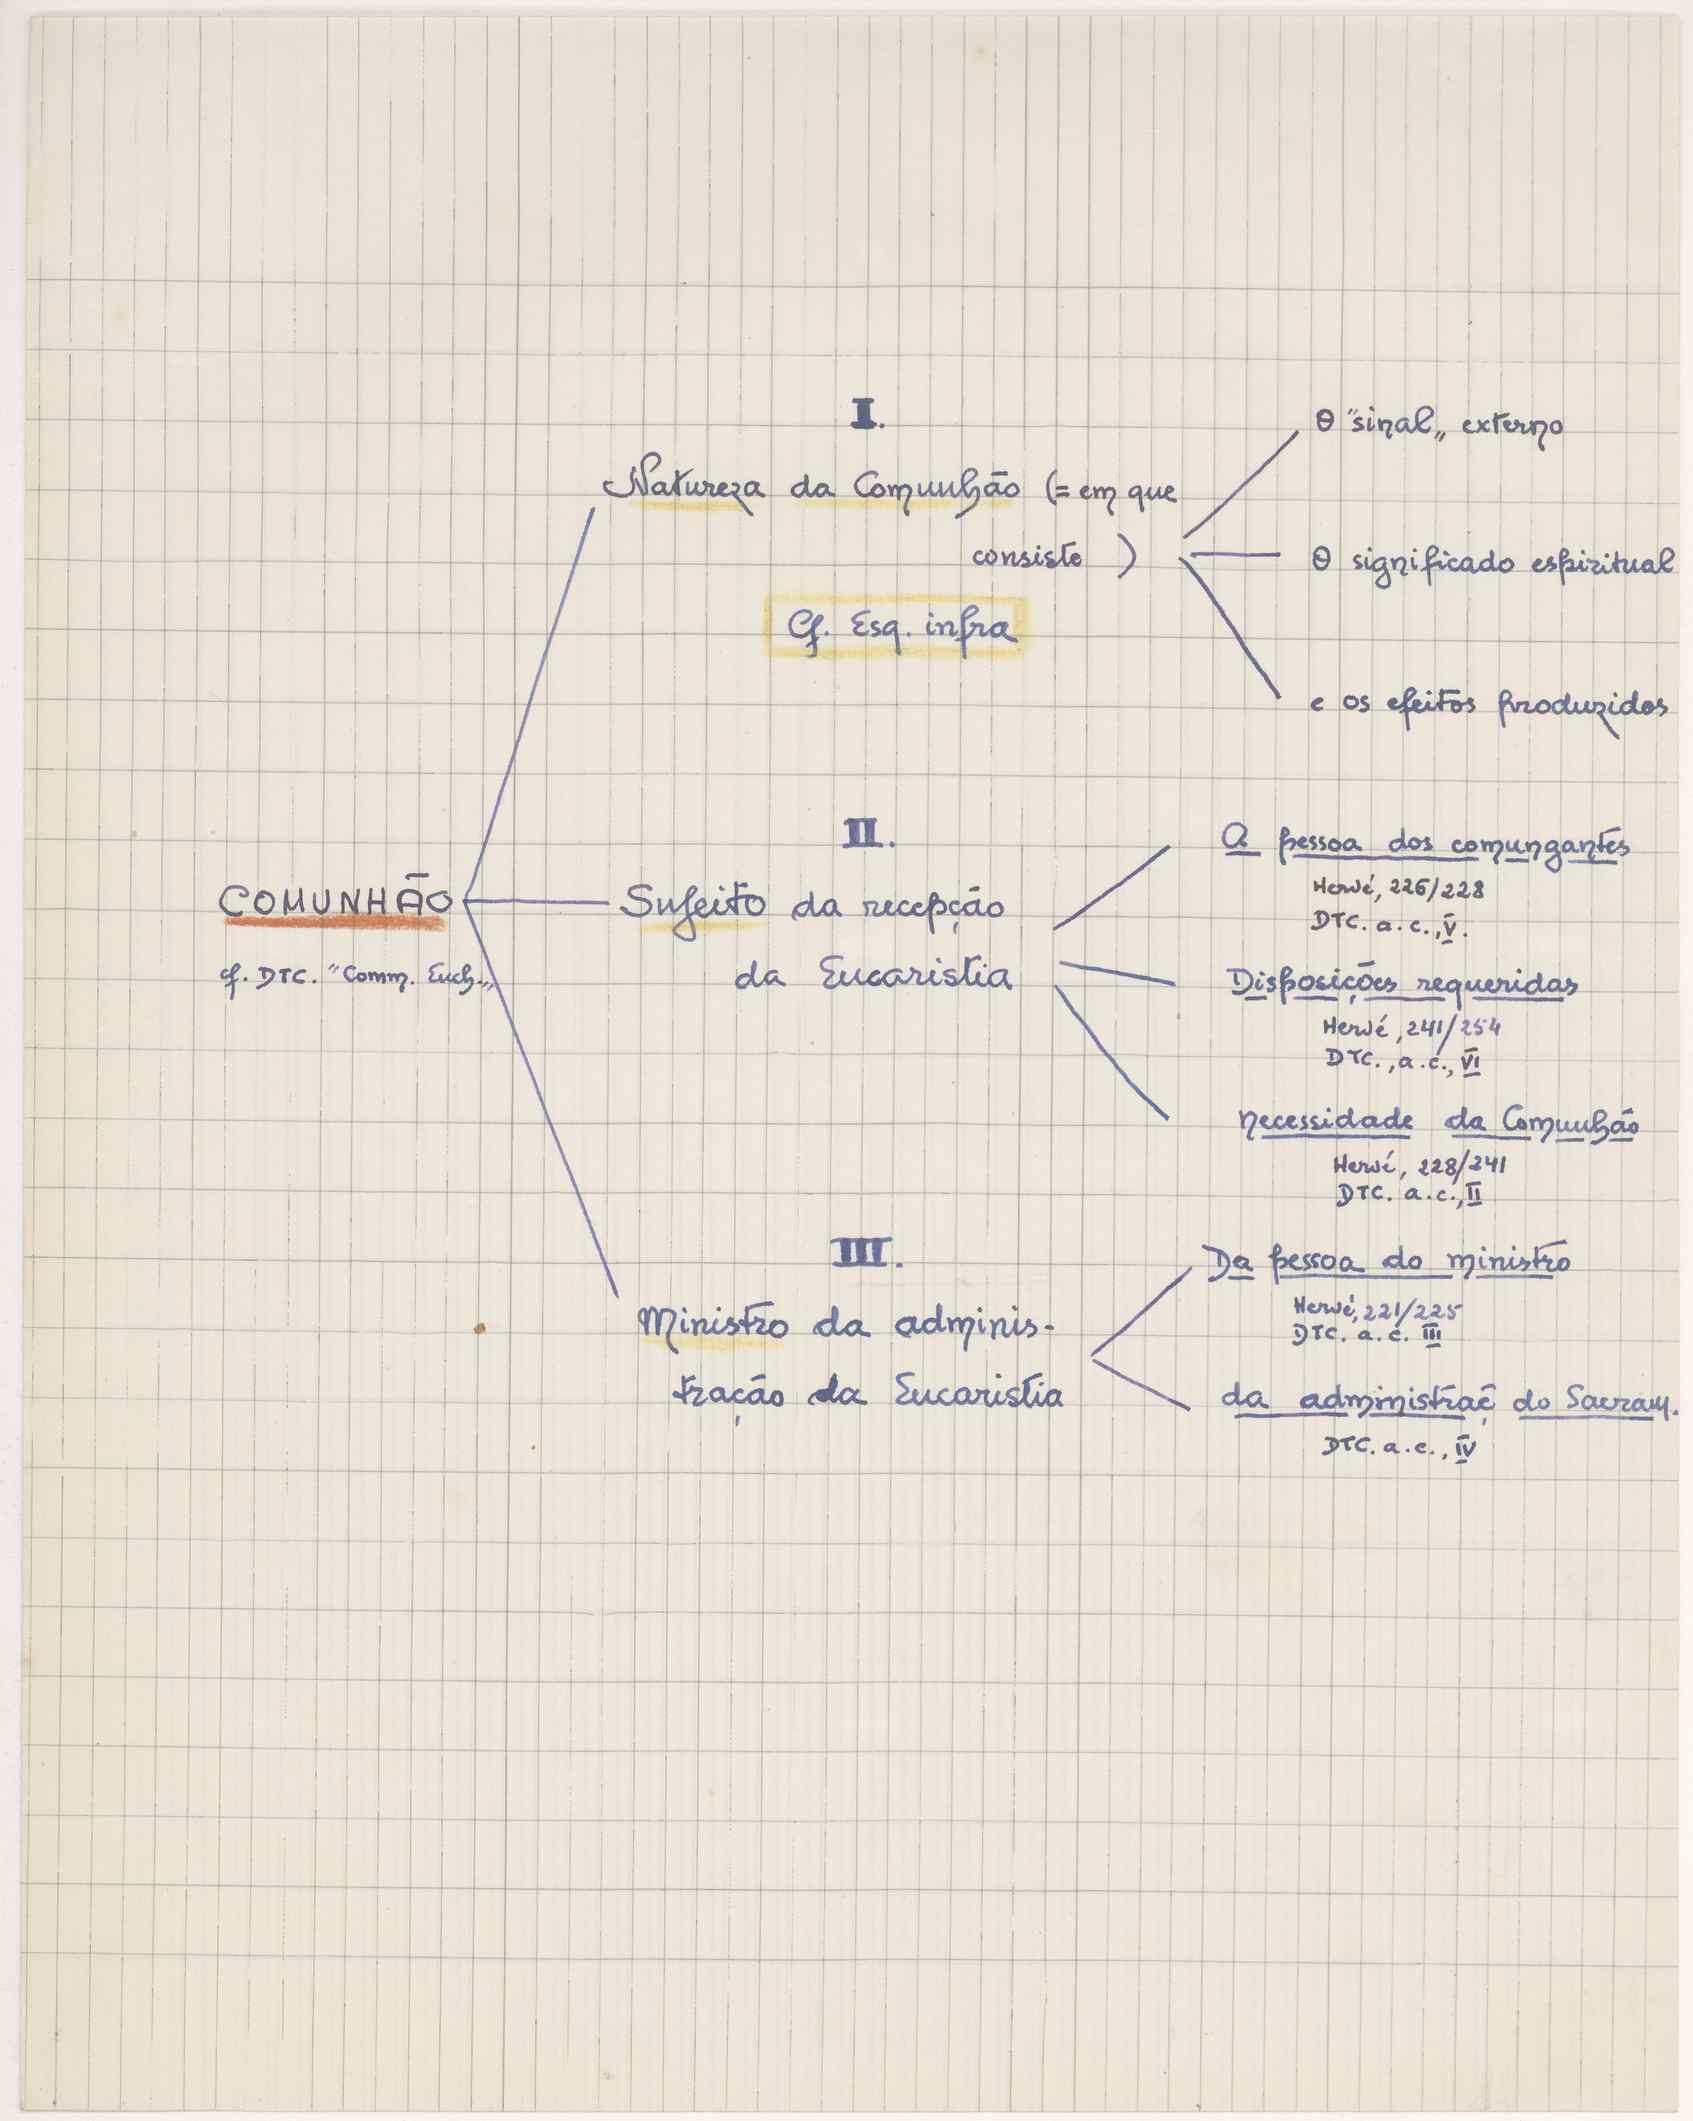 COMUNHÃO
cf. DTC. "Comm. Euch.„
I.
Natureza da Comunhão (= em que
consiste )
Cf. Esq. infra
O "sinal„ externo
O significado espiritual
e os efeitos produzidos
II.
Sujeito da recepção
da Eucaristia
A pessoa dos comungantes
Hervé, 226/228
DTC. a. c., V.
Disposições requeridas
Hervé, 241/254
DTC., a. c., VI
necessidade da Comunhão
Hervé, 228/241
DTC. a. c., II
III.
Ministro da adminis-
tração da Eucaristia
Da pessoa do ministro
Hervé, 221/225
DTC. a. c. III
da administraç̃ do Sacram.
DTC. a. c., IV